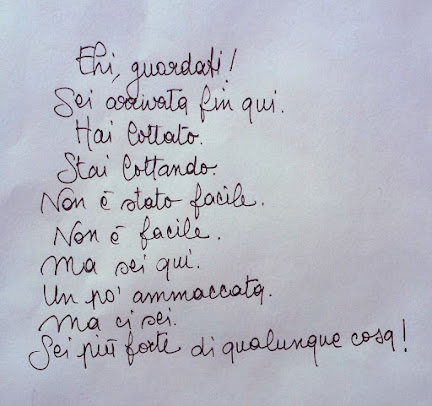 Ehi, guardati!
Sei arrivata fin qui.
Hai lottato.
Stai lottando.
Non è stato facile.
Non è facile.
Ma sei qui.
Un po' ammaccata.
Ma ci sei.
Sei più forte di qualunque cosa!